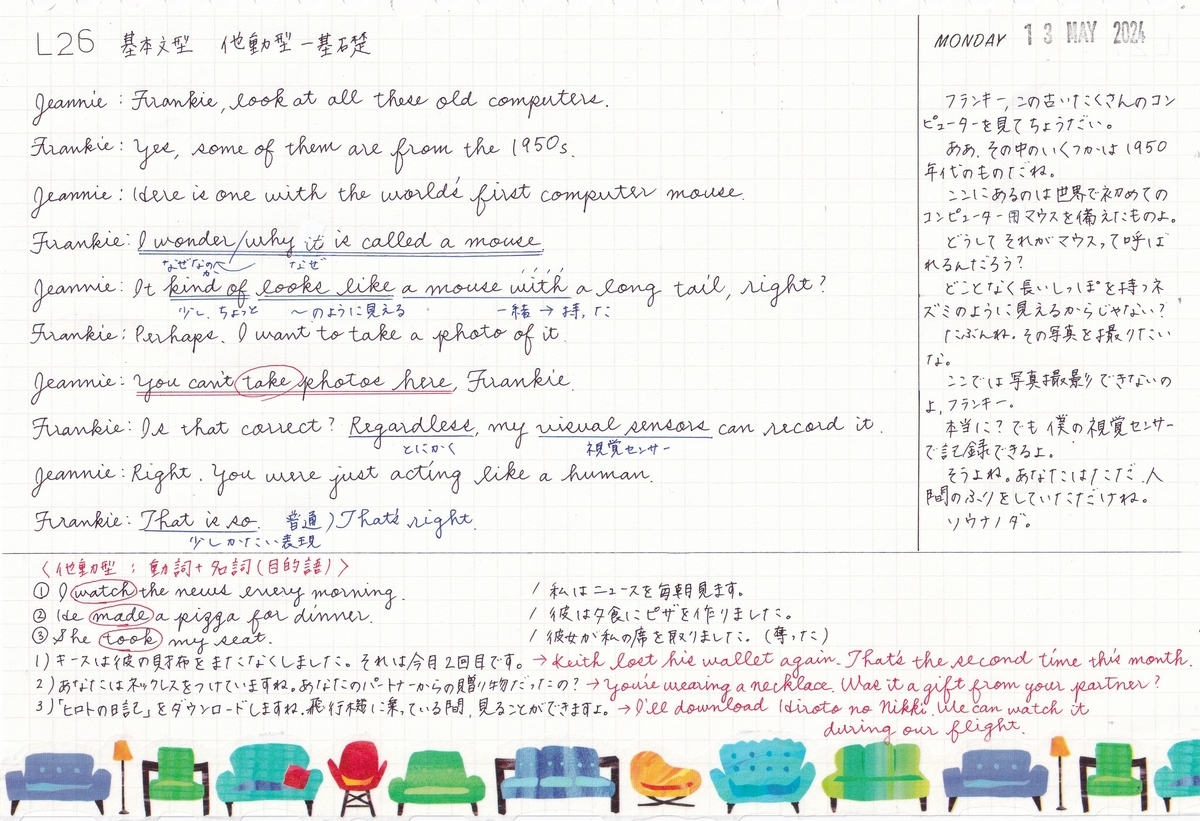 L26 基本文型 他動型-基礎
MONDAY 13 MAY 2024
Jeannie : Frankie, look at all these old computers.
Frankie : Yes, some of them are from the 1950s.
Jeannie : Here is one with the world's first computer mouse.
Frankie : I wonder / why it is called a mouse.
なぜなのか なぜ
Jeannie : It kind of looks like a mouse with a long tail, right?
少し、ちょっと 〜のように見える 一緒 → 持った
Frankie : Perhaps. I want to take a photo of it.
Jeannie : You can't take photos here, Frankie.
Frankie : Is that correct? Regardless, my visual sensors can record it.
とにかく 視覚センサー
Jeannie : Right. You were just acting like a human.
Frankie : That is so. 普通) That's right.
少しかたい表現
フランキー, この古いたくさんのコン
ピューターを見てちょうだい。
ああ、その中のいくつかは1950
年代のものだね。
ここにあるのは世界で初めての
コンピューター用マウスを備えたものよ。
どうしてそれがマウスって呼ば
れるんだろう?
どことなく長いしっぽを持つネ
ズミのように見えるからじゃない?
たぶんね。その写真を撮りたい
な。
ここでは写真撮影できないの
よ, フランキー。
本当に? でも僕の視覚センサー
で記録できるよ。
そうよね。あなたはただ人
間のふりをしていただけね。
ソウナノダ。
〈他動型 : 動詞+名詞(目的語)〉
① I watch the news every morning. / 私はニュースを毎朝見ます。
② He made a pizza for dinner. / 彼は夕食にピザを作りました。
③ She took my seat. / 彼女が私の席を取りました。(奪った)
1) キースは彼の財布をまたなくしました。それは今月2回目です。→ Keith lost his wallet again. That's the second time this month.
2) あなたはネックレスをつけていますね。あなたのパートナーからの贈り物だったの? → You're wearing a necklace. Was it a gift from your partner?
3) 「ヒロトの日記」をダウンロードしますね。飛行機に乗っている間, 見ることができますよ。→ I'll download Hiroto no Nikki. We can watch it
during our flight.